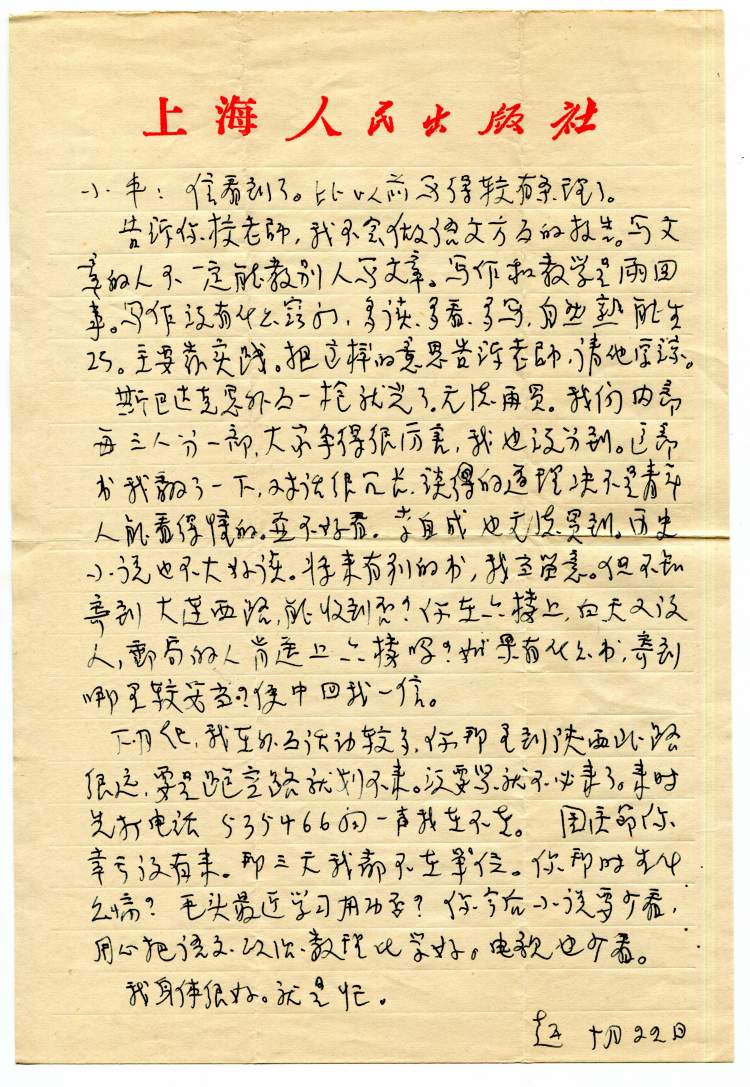 上海人民出版社
小丰：信看到了。比以前写得较有条理了。
告诉你校老师，我不会做语文方面的报告。写文
章的人不一定能教别人写文章。写作和教学是两回
事。写作没有什么窍门，多读、多看、多写，自然熟能生
巧。主要靠实践。把这样的意思告诉老師，请他原谅。
斯巴达克思外面一抢就光了。无法再买。我们内部
每三人分一部，大家争得很厉害，我也没分到。这部
书我翻了一下，对话很冗长，谈得的道理决不是青年
人能看得懂的。并不好看。李自成也无法买到。历史
小说也不大好读。将来有别的书，我当留意。但不知
寄到大连西路，能收到否？你在六楼上，白天又没
人，邮局的人肯送上六楼吗？如果有什么书，寄到
哪里较妥当？便中回我一信。
下月化，我在外面活动较多，你那里到陕西北路
很远，要是跑空路就划不来。没要紧就不必来了。来时
先打电话 535466问一声我在不在。 国庆节你
幸亏没有来。那三天我都不在单位。你那时生什
么病？毛头最近学习用功否？你今后小说要少看，
用心把语文、政治、数理化学好。电视也少看。
我身体很好。就是忙。
十月22日